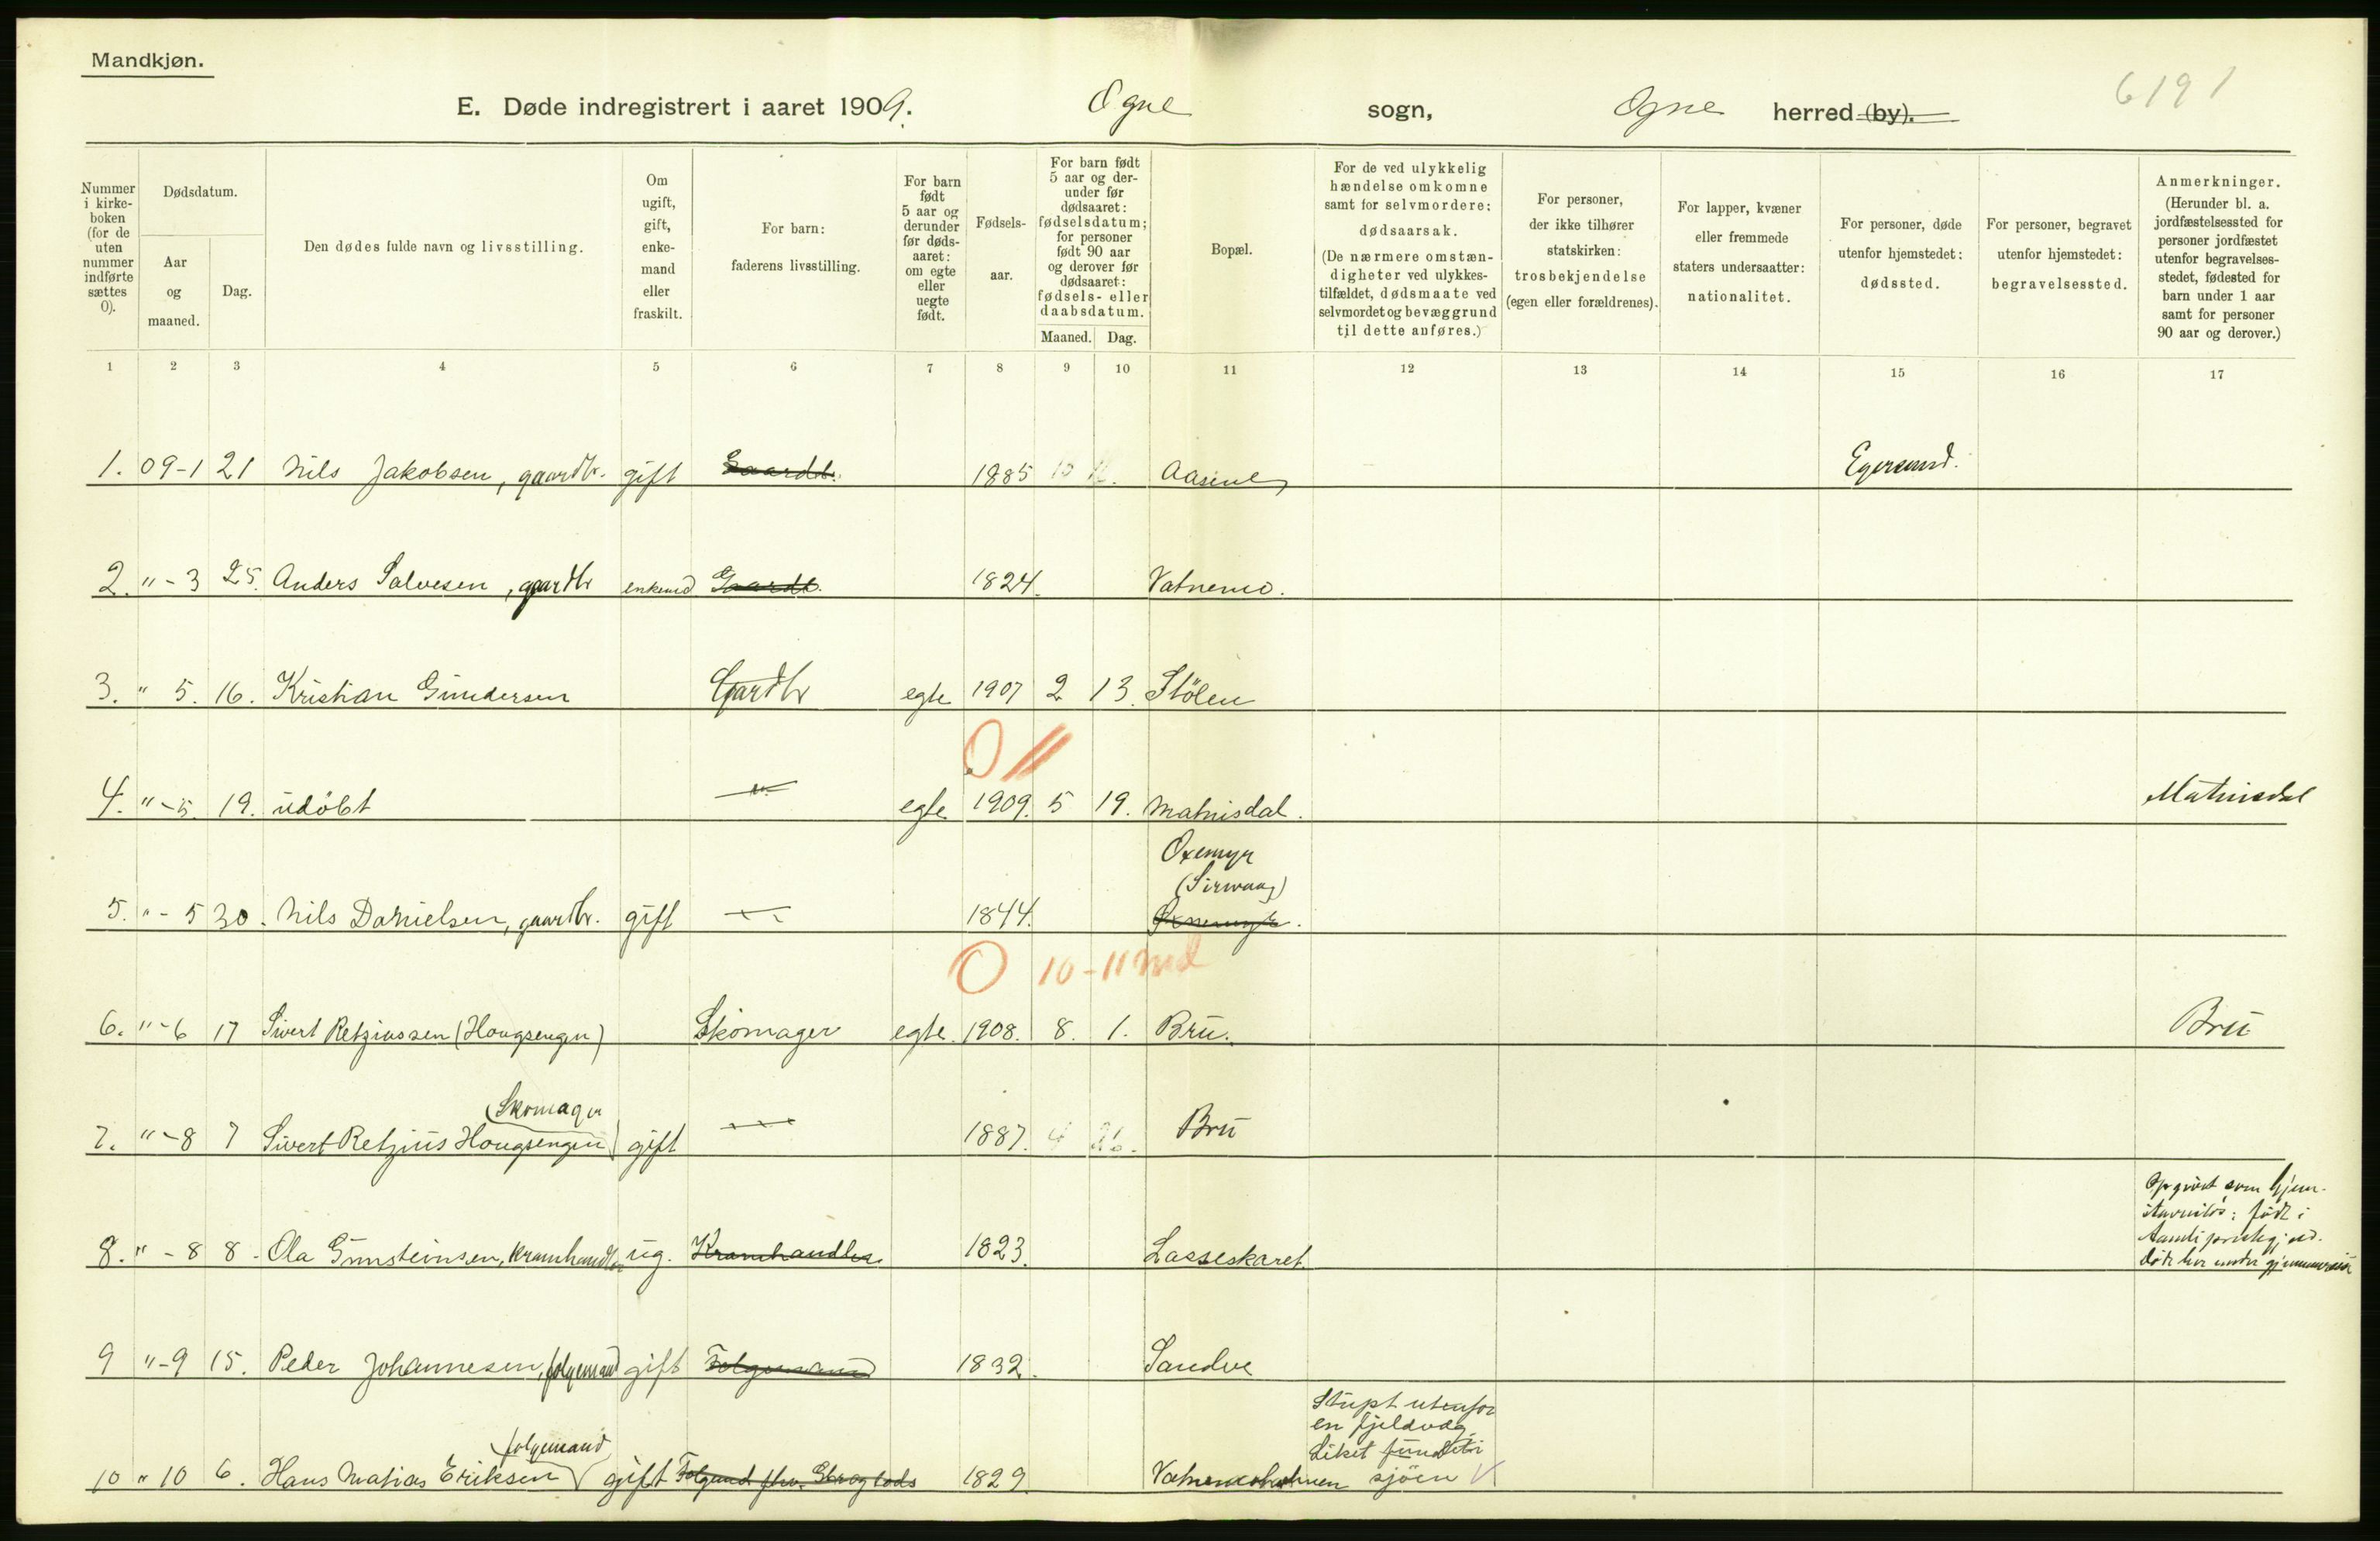 Mandkjøn.
6191
E. Døde indregistrert i aaret 1909. Ogne sogn, Ogne herred (by).
Nummer i kirkeboken (for de uten nummer indførte sættes 0).
Dødsdatum.
Aar og maaned.
Dag.
Den dødes fulde navn og livsstilling.
Om ugift, gift, enkemand eller fraskilt.
For barn: faderens livsstilling.
For barn født 5 aar og derunder før dødsaaret: om egte eller uegte født.
Fødselsaar.
For barn født 5 aar og derunder før dødsaaret: fødselsdatum; for personer født 90 aar og derover før dødsaaret: fødsels- eller daabsdatum.
Maaned. Dag.
Bopæl.
For de ved ulykkelig hændelse omkomne samt for selvmordere: dødsaarsak. (De nærmere omstændigheter ved ulykkestilfældet, dødsmaate ved selvmordet og bevæggrund til dette anføres.)
For personer, der ikke tilhører statskirken: trosbekjendelse (egen eller forældrenes).
For lapper, kvæner eller fremmede staters undersaatter: nationalitet.
For personer, døde utenfor hjemstedet: dødssted.
For personer, begravet utenfor hjemstedet: begravelsessted.
Anmerkninger. (Herunder bl. a. jordfæstelsessted for personer jordfæstet utenfor begravelsesstedet, fødested for barn under 1 aar samt for personer 90 aar og derover.)
1 2 3 4 5 6 7 8 9 10 11 12 13 14 15 16 17
1. 09-1 21 Nils Jakobsen, gaardbr. gift Gaardb. 1885 Aasene Egersund.
2. "-3 25. Anders Salvesen, gaardbr enkemd Gaardb. 1824. Vatnemo.
3. " 5. 16. Kristian Gundersen Gardbr egte 1907 2 13. Stölen
0 11
4. "-5. 19. udöbt -"- egte 1909. 5 19. Matnisdal. Matnisdal
Oxemyr
(Sirevaag)
5. "-5 30. Nils Danielsen, gaardbr. gift -"- 1844.
0 10-11 md
6. "-6 17 Sivert Retziussen (Hougsengen) Skomager egte. 1908. 8. 1. Bru. Bru
Skomager
7. "-8 7 Sivert Retzius Hougsengen gift -"- 1887. 4 Bru
8. "-8 8. Ola Gunsteinsen, kramhandler ug. Kramhandler. 1823. Lasseskaret
Opgivet som hjem-
födt i
9 "-9 15. Peder Johannesen, folgemand gift Folgemand 1832. Sandve
Stupt utenfor
en fjeldvæg.
Liket fundet i
folgemand
10 " 10 6. Hans Matias Eriksen gift 1829. Vatnemoholmen sjöen V